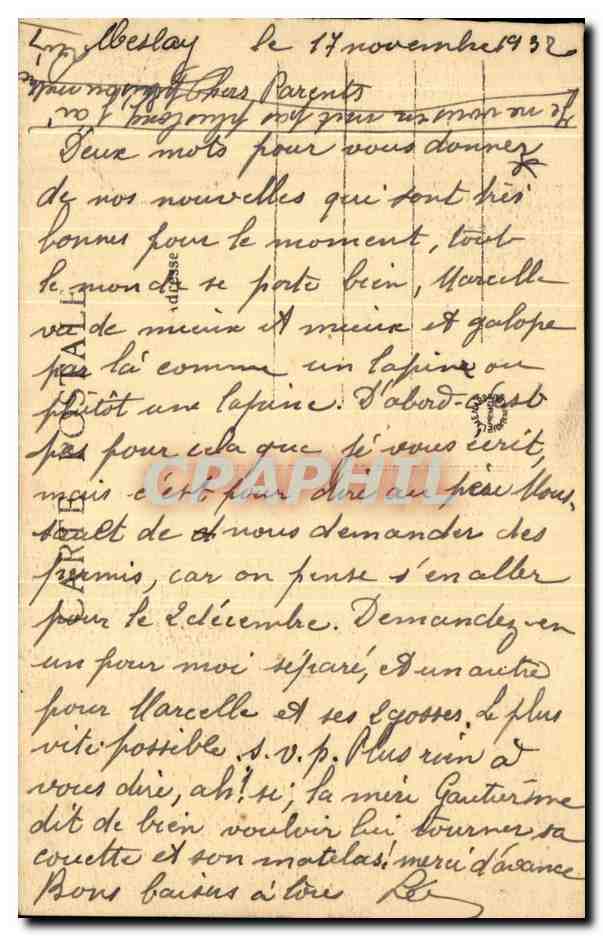 Meslay le 17 novembre 1932
Chers Parents
Deux mots pour vous donner
de nos nouvelles qui sont très
bonnes pour le moment, tout
le monde se porte bien, Marcelle
va de mieux et mieux et galope
par là comme un lapin ou
plutôt une lapine. D'abord c'est
pas pour cela que je vous écrit,
mais c'est pour dire au père Mous-
sault de vous demander des
permis, car on pense s'en aller
pour le 2 décembre. Demandez-en
un pour moi séparé, et un autre
pour Marcelle et ses 2 gosses. Le plus
vite possible. s.v.p. Plus rien à
vous dire, ah! si; la mère Gautier me
dit de bien vouloir lui tourner sa
couette et son matelas! merci d'avance
Bons baisers à tous
CARTE POSTALE
Adresse
CPAPHIL